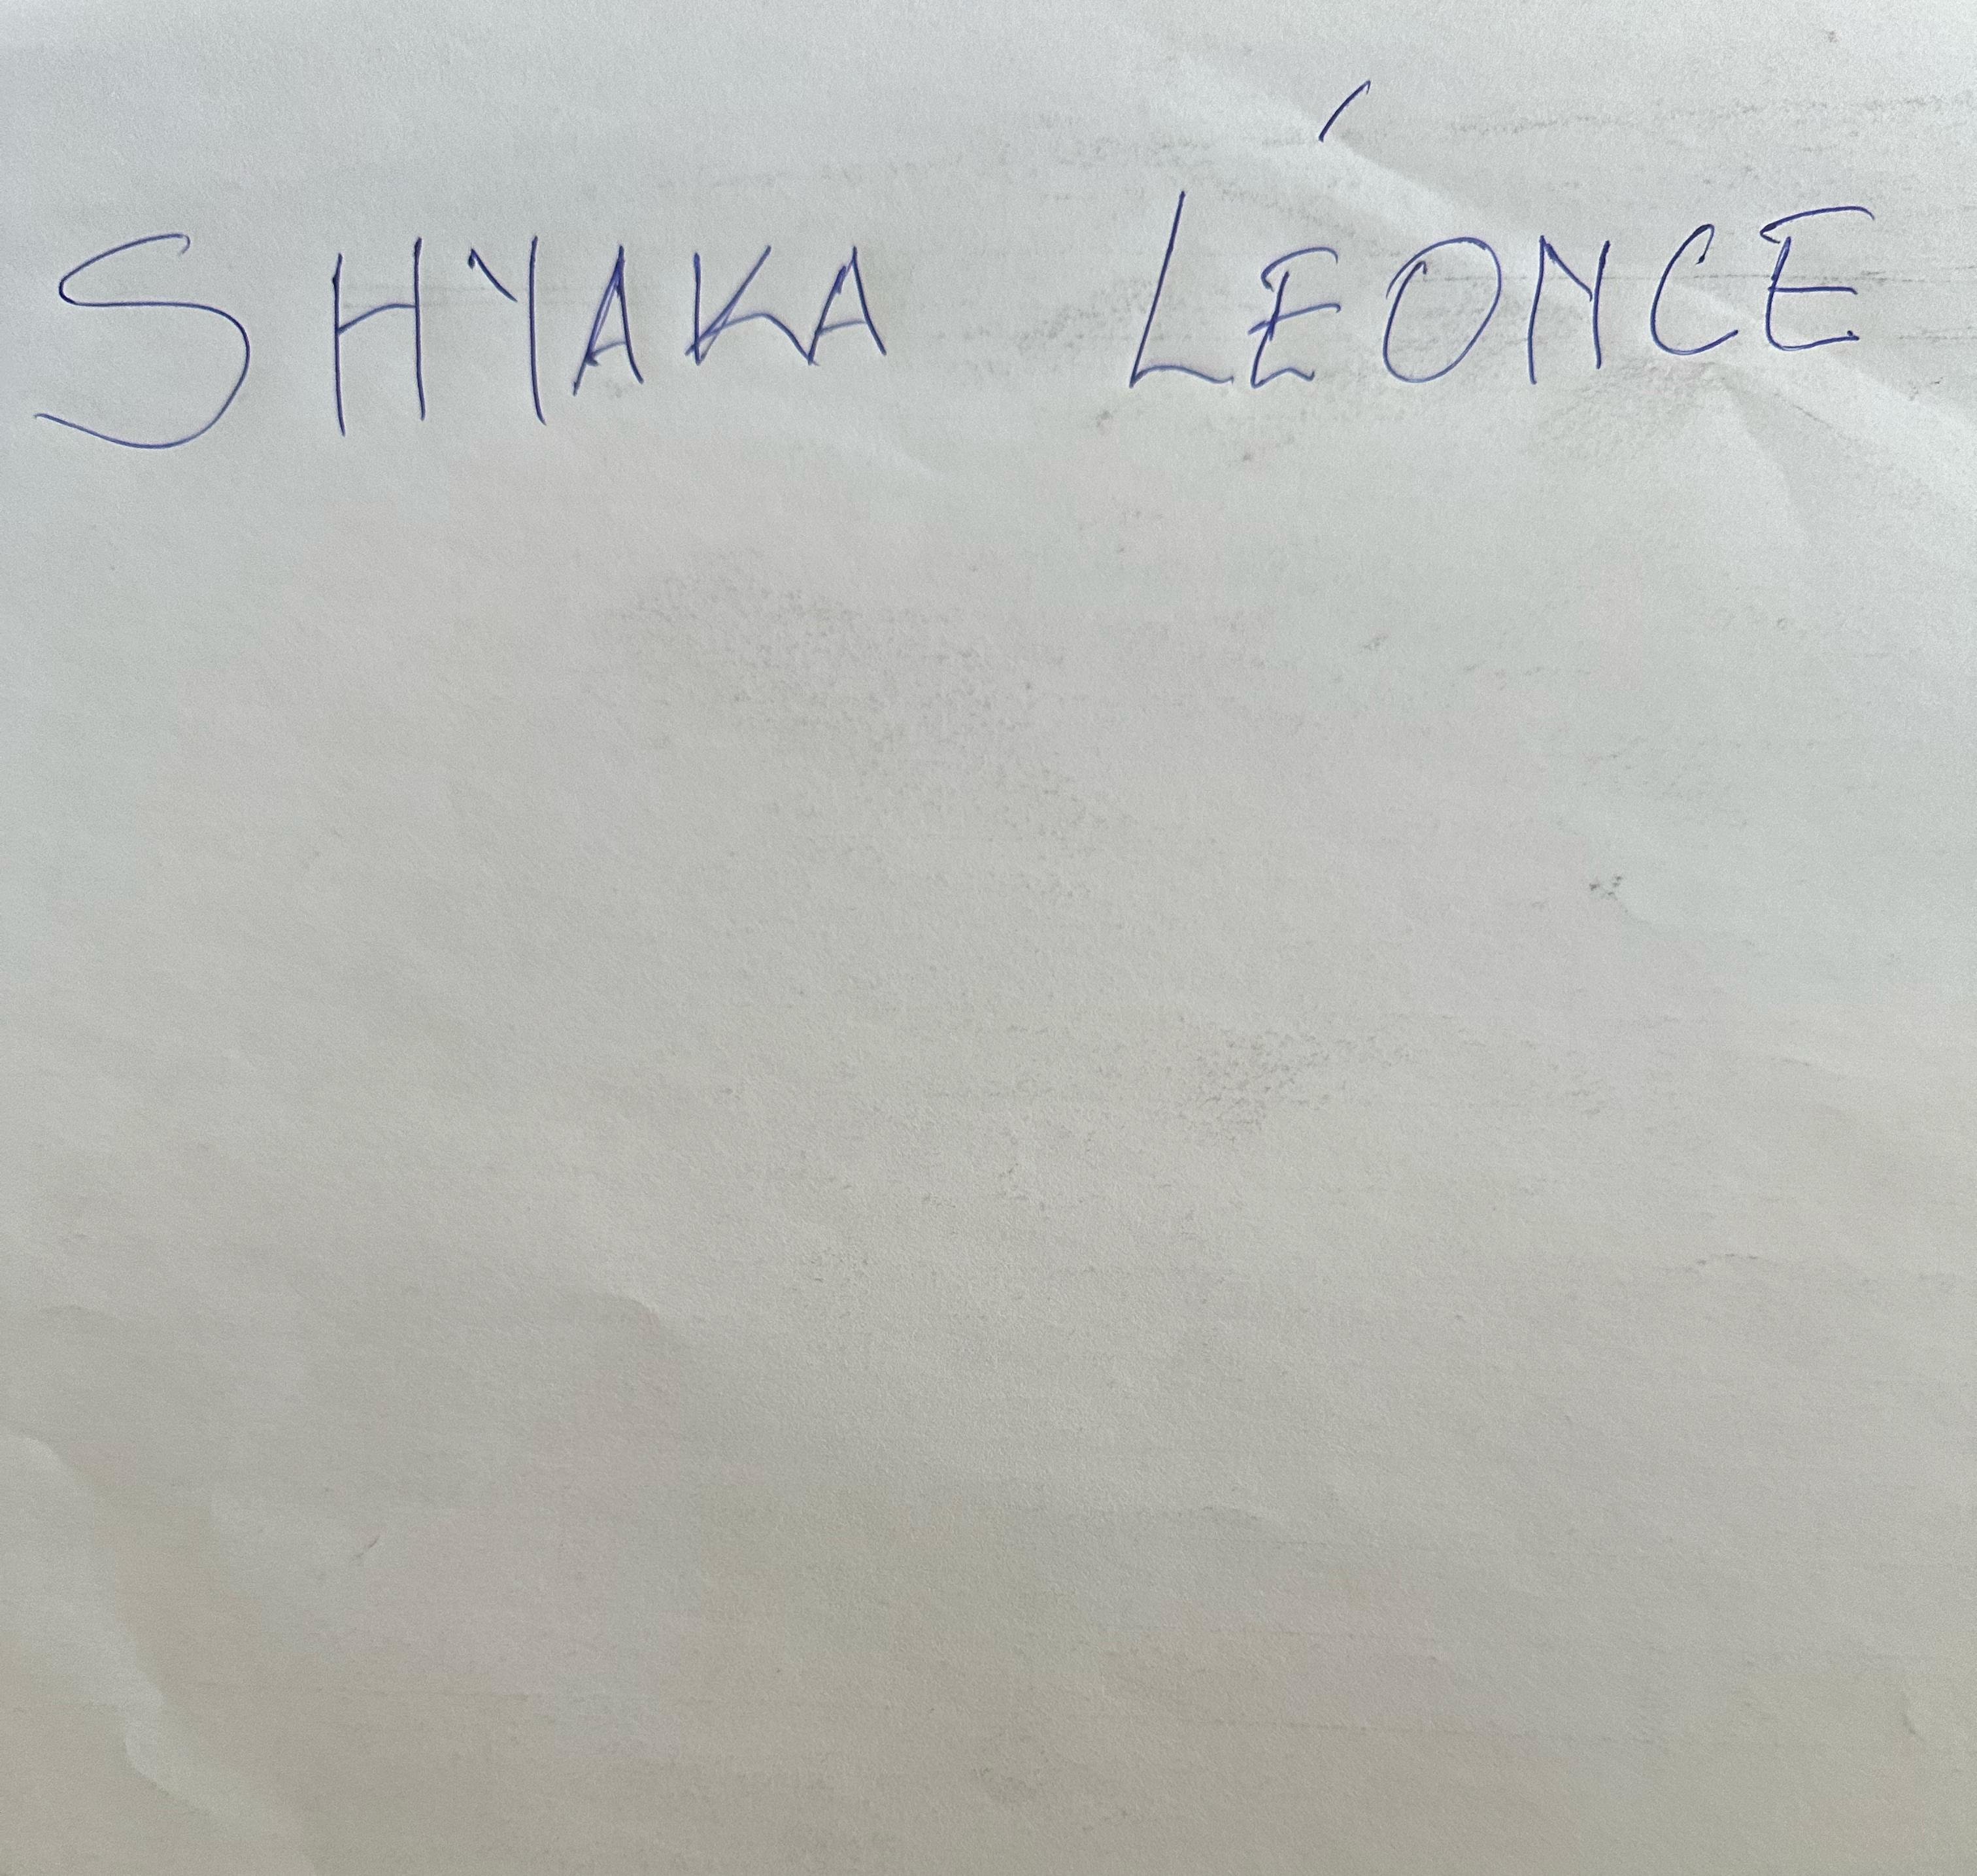 SHYAKA LÉONCE